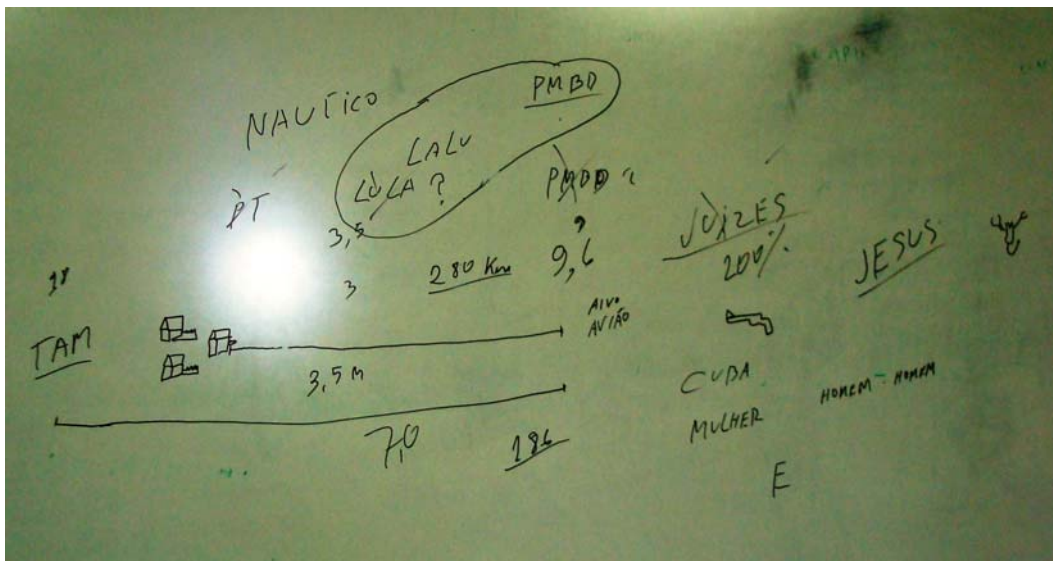 NAUTICO
PMBD
LALU
LULA ?
PT
PMDD
3,5
3
280 Km
9,6
JUÍZES
200%
JESUS
38
TAM
ALVO
AVIÃO
3,5 M
CUBA
HOMEM - HOMEM
MULHER
7,0
186
E